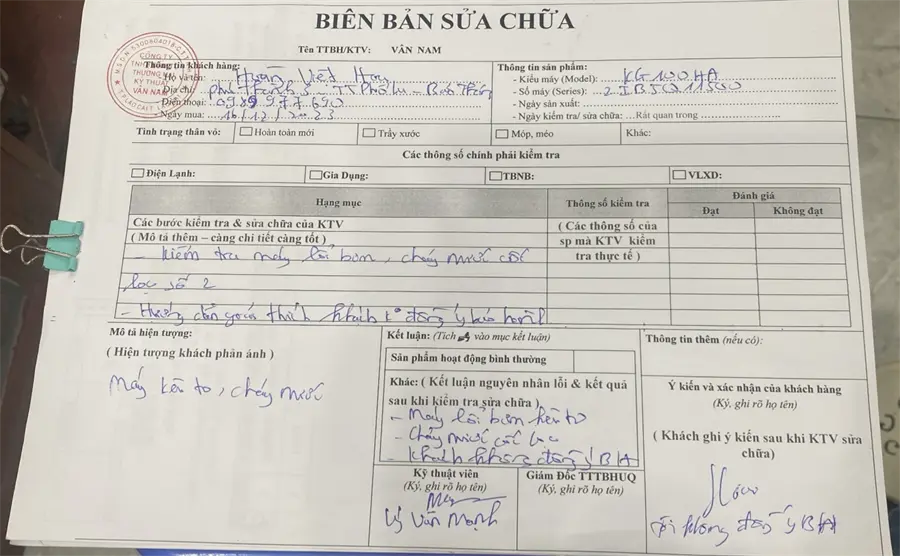 BIÊN BẢN SỬA CHỮA
Tên TTBH/KTV: VÂN NAM
CÔNG TY
TNHH
THƯƠNG
KỸ THUẬT
VÂN NAM
Thông tin khách hàng:
- Họ và tên: Việt
- Địa chỉ: Phú Thành 3 - TT Phố Lu - Bảo Thắng
- Điện thoại: 0989 977 690
- Ngày mua: 16/12/2023
Thông tin sản phẩm:
- Kiểu máy (Model): KG100HA
- Số máy (Series):
- Ngày sản xuất:
- Ngày kiểm tra/ sửa chữa: ...Rất quan trong
Tình trạng thân vỏ: Hoàn toàn mới Trầy xước Móp, méo Khác:
Các thông số chính phải kiểm tra
Điện Lạnh: Gia Dụng: TBNB: VLXD:
Hạng mục Thông số kiểm tra Đánh giá
Đạt Không đạt
Các bước kiểm tra & sửa chữa của KTV
( Mô tả thêm – càng chi tiết càng tốt )
( Các thông số của
sp mà KTV kiểm
tra thực tế )
- Kiểm tra máy lỗi bơm, chảy nước cốc
lọc số 2
- Hướng dẫn giải thích khách k° đồng ý bảo hành
Mô tả hiện tượng:
( Hiện tượng khách phản ánh )
Máy kêu to, chảy nước
Kết luận: (Tích vào mục kết luận)
Sản phẩm hoạt động bình thường
Khác: ( Kết luận nguyên nhân lỗi & kết quả
sau khi kiểm tra sửa chữa )
- Máy lỗi bơm kêu to
- Chảy nước cốc lọc
- Khách không đồng ý BH
Kỹ thuật viên
(Ký, ghi rõ họ tên)
Lý Văn Mạnh
Giám Đốc TTTBHUQ
(Ký, ghi rõ họ tên)
Thông tin thêm (nếu có):
Ý kiến và xác nhận của khách hàng
(Ký, ghi rõ họ tên)
( Khách ghi ý kiến sau khi KTV sửa
chữa)
tôi không đồng ý BH